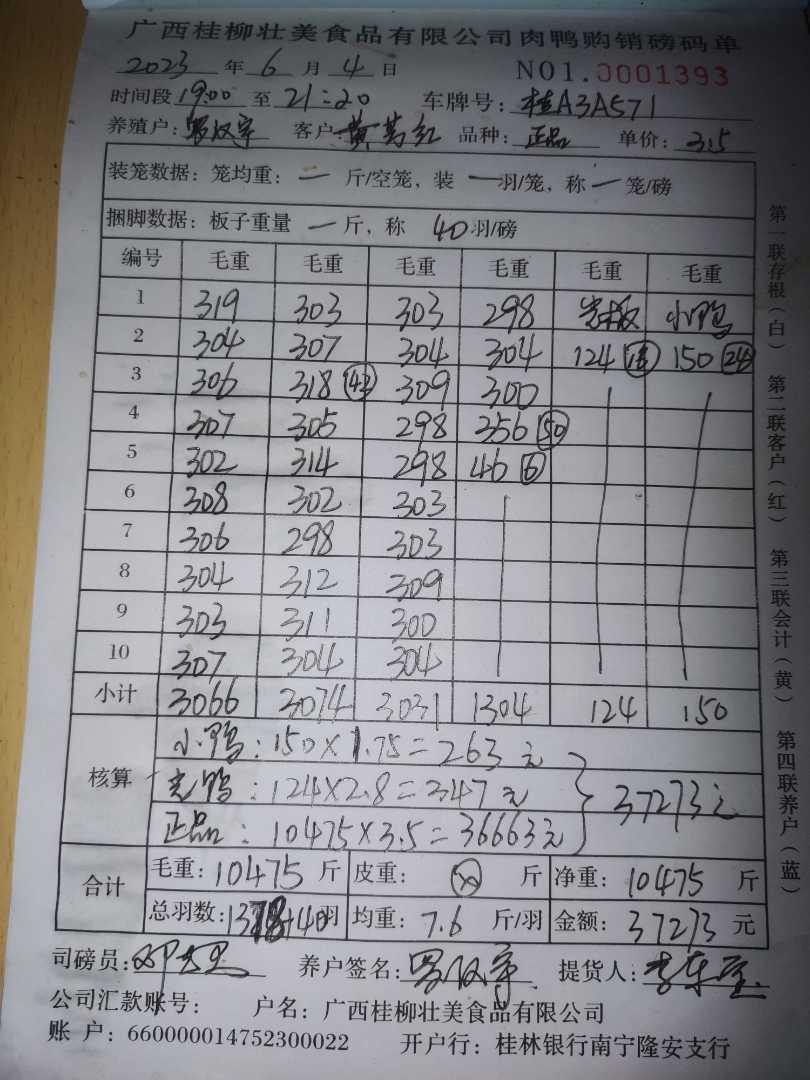 广西桂柳壮美食品有限公司肉鸭购销磅码单
2023 年 6 月 4 日 NO1.0001393
时间段 19:00 至 21:20 车牌号: 桂A3A571
养殖户: 罗汉宇 客户: 品种: 正品 单价: 3.5
装笼数据: 笼均重: 一 斤/空笼, 装 一 羽/笼, 称 一 笼/磅
捆脚数据: 板子重量 一 斤, 称 40 羽/磅
编号 毛重 毛重 毛重 毛重 毛重 毛重
1 319 303 303 298 光板 小鸭
2 304 307 304 304 124 150 24
3 306 318 42 309 300
4 307 305 298 356 50
5 302 314 298 46 6
6 308 302 303
7 306 298 303
8 304 312 309
9 303 311 300
10 307 304 304
小计 3066 3074 3031 1304 124 150
核算
小鸭: 150×1.75=263元
光鸭: 124×2.8=347元
正品: 10475×3.5=36663元
} 37273元
合计
毛重: 10475 斤 皮重: 斤 净重: 10475 斤
总羽数: +40羽 均重: 7.6 斤/羽 金额: 37273 元
司磅员: 养户签名: 罗汉宇 提货人:
公司汇款账号: 户名: 广西桂柳壮美食品有限公司
账 户: 660000014752300022 开户行: 桂林银行南宁隆安支行
第一联存根(白)
第二联客户(红)
第三联会计(黄)
第四联养户(蓝)